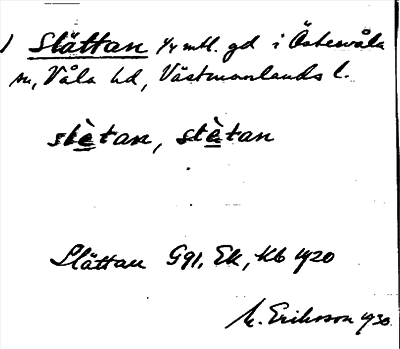 1 Slättan 1/4 mtl. gd i Östervåla
sn, Våla hd, Västmanlands l.
slètan, slètan
Slättan Ggl. Ek, Kb 1920
M. Eriksson 1930